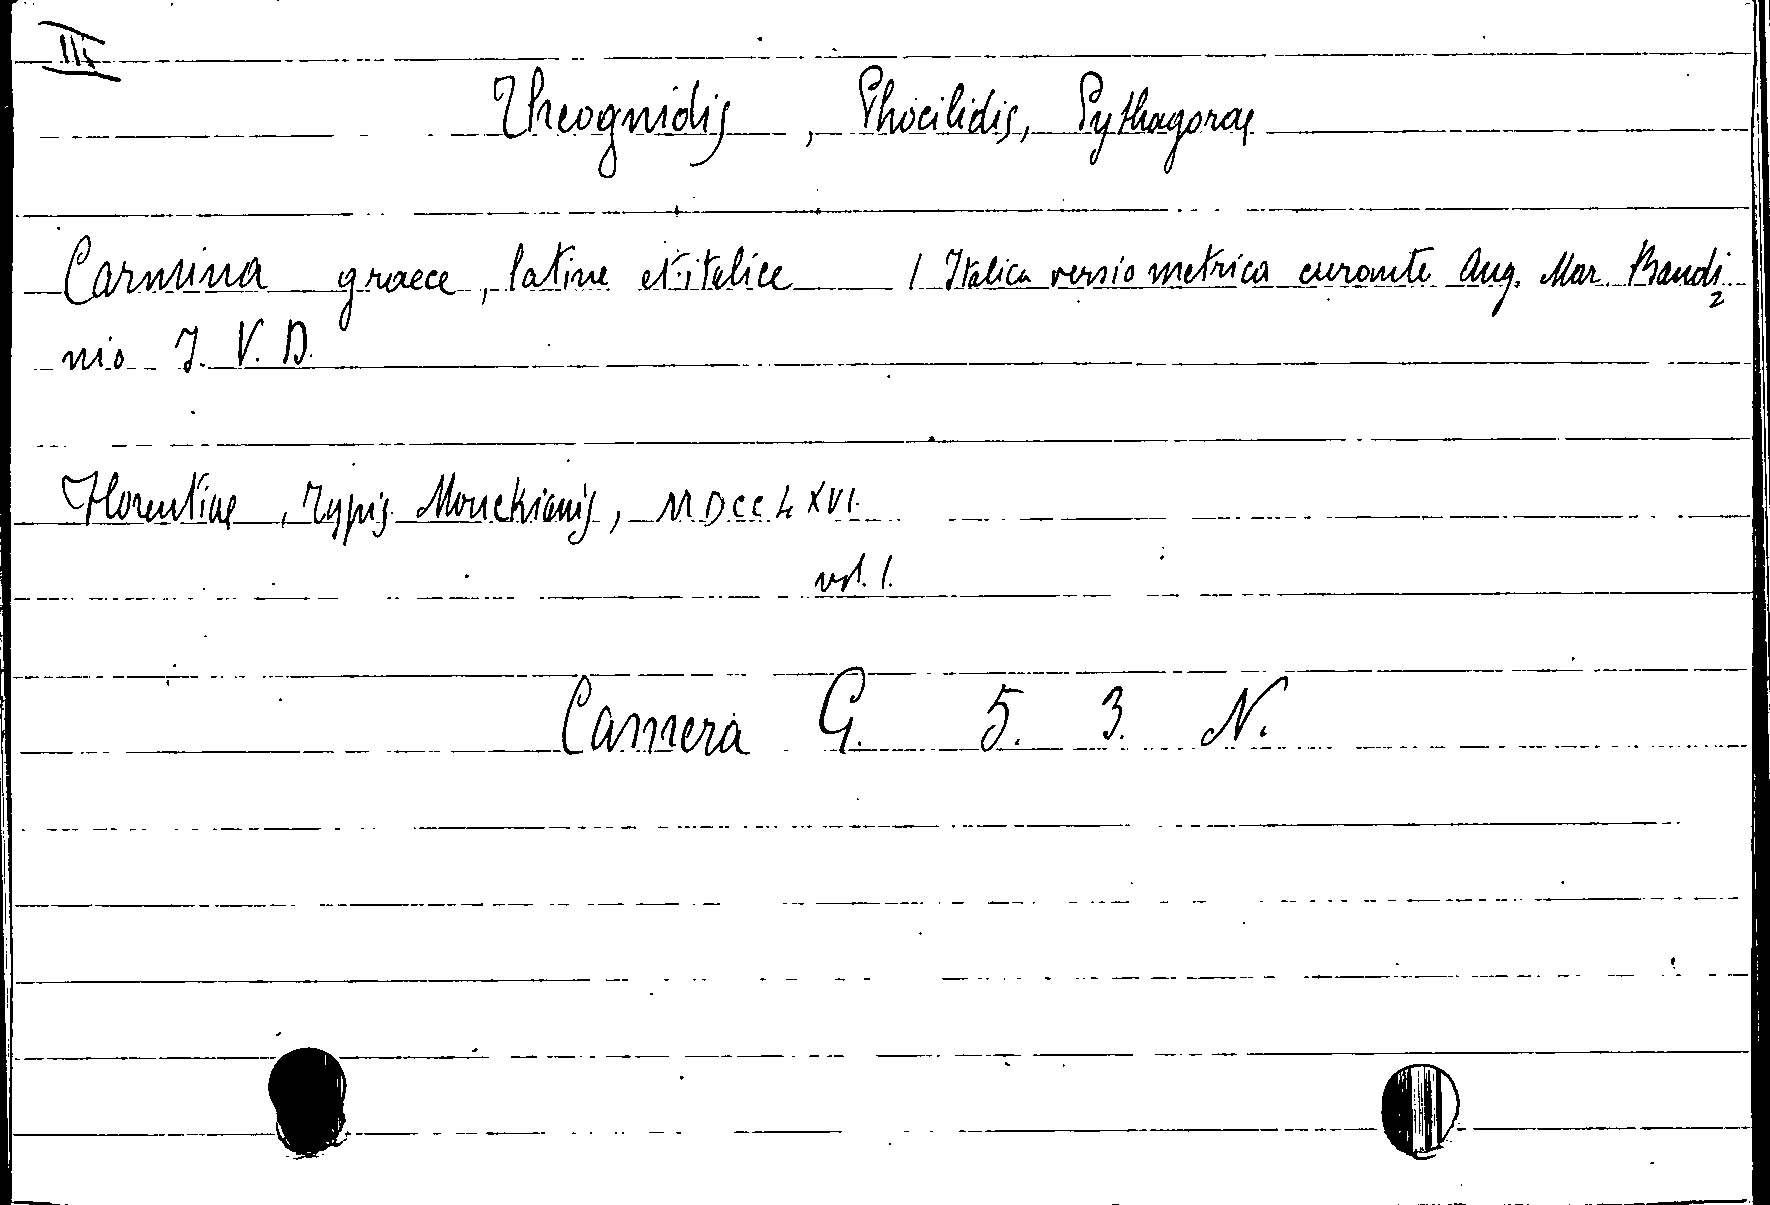 III
Theognidis, Phocilidis, Pythagorae
Carmina graece, latine et italice / Italica versio metrica curante Aug. Mar. Bandi
nio J. V. D.
Florentiae, Typis Mouckianis, MDCCLXVI.
vol. 1.
Camera G. 5. 3. N.